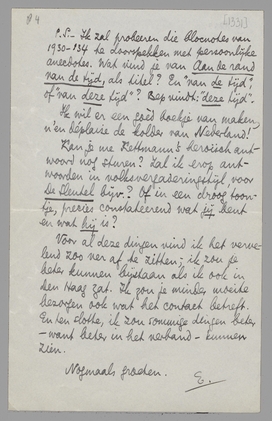 № 4
[1331]
P.S.- Ik zal probeeren die blocnotes van
1930-'34 te doorspekken met persoonlijke
anecdotes. Wat vind je van Aan de rand
van de tijd, als titel? En "van de tijd"
of "van deze tijd"? Bep vindt: "deze tijd".
Ik wil er een goed boekje van maken,
n'en déplaise de kolder van Nederland!
Kan je me Kettmann's heroïsch ant-
woord nog sturen? Zal ik erop ant-
woorden in volksvergaderingstijl voor
De Sleutel bijv.? Of in een droog toon-
tje, precies constateerend wat jij bent
en wat hij is?
Voor al deze dingen vind ik het verve-
lend zoo ver af te zitten; ik zou je
beter kunnen bijstaan als ik ook in
Den Haag zat. Ik zou je minder moeite
bezorgen ook wat het contact betreft.
En ten slotte, ik zou sommige dingen beter
- want beter in het verband - kunnen
zien.
Nogmaals groeten.
E.